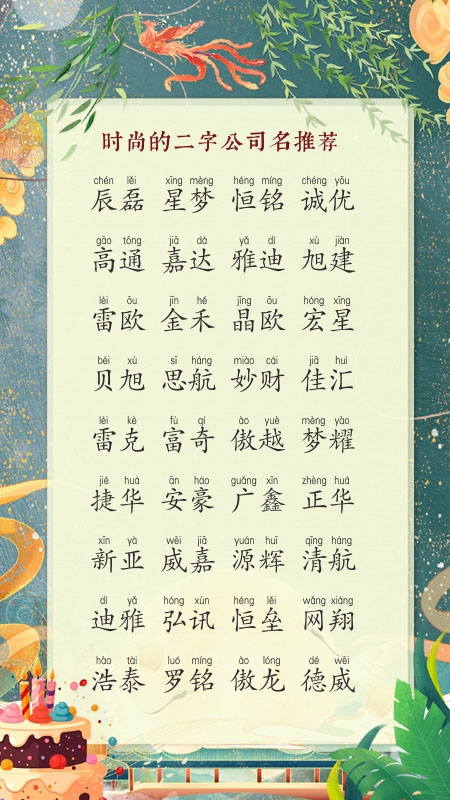 时尚的二字公司名推荐
chén lěi xīng mèng héng míng chéng yōu
辰磊 星梦 恒铭 诚优
gāo tōng jiā dá yǎ dí xù jiàn
高通 嘉达 雅迪 旭建
léi ōu jīn hé jīng ōu hóng xīng
雷欧 金禾 晶欧 宏星
bèi xù sī háng miào cái jiā huì
贝旭 思航 妙财 佳汇
léi kè fù qí ào yuè mèng yào
雷克 富奇 傲越 梦耀
jié huá ān háo guǎng xīn zhèng huá
捷华 安豪 广鑫 正华
xīn yà wēi jiā yuán huī qīng háng
新亚 威嘉 源辉 清航
dí yǎ hóng xùn héng lěi wǎng xiáng
迪雅 弘讯 恒垒 网翔
hào tài luó míng ào lóng dé wēi
浩泰 罗铭 傲龙 德威